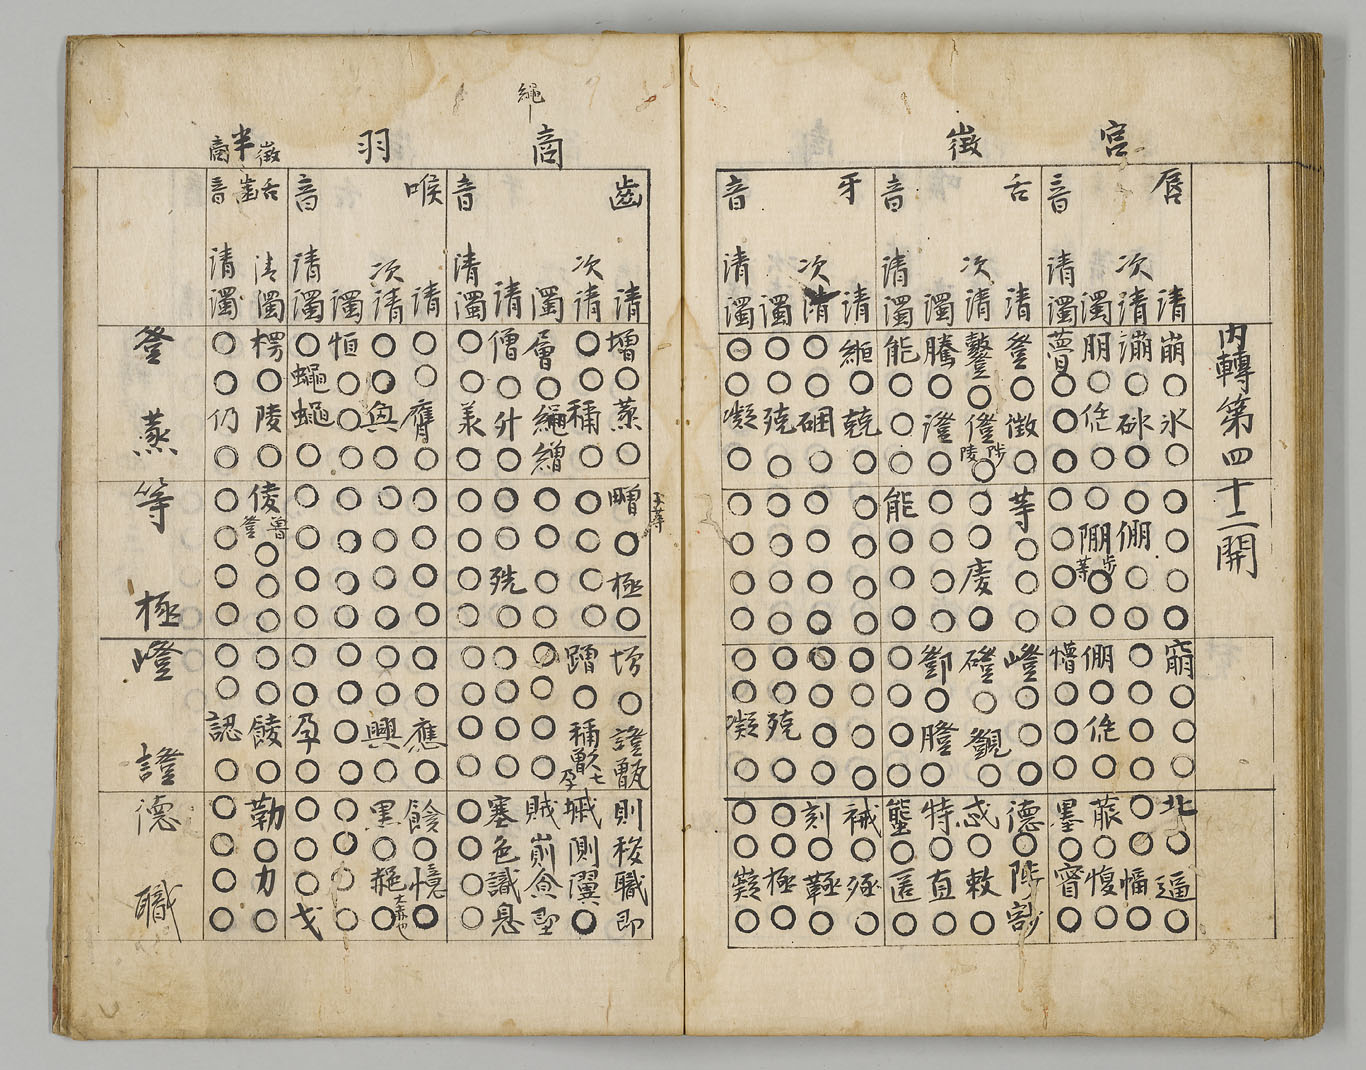 内轉第四十二開
宮
唇音
清 崩○氷○ ○○○○ ○○○ 北○逼○
次清 漰○砯○ ○倗○○ ○○○○ ○○愊○
濁 朋○○ ○○○ 倗○○ ○愎○
清濁 瞢○○○ ○○○○ 懵○○○ 墨○○
徵
舌音
清 登○徵○ 等○○○ 嶝○○○ 德○陟
次清 鼞○僜 陟陵 ○ ○○庱○ 磴○覴○ 忒○敕○
濁 騰○澄○ ○○○○ 鄧○瞪○ 特○直○
清濁 能○○○ 能○○○ ○○○○ 螚○匿○
牙音
清 縆○兢○ ○○○○ ○○○○ 祴○殛○
次清 ○○硱○ ○○○○ ○○○○ 刻○○
濁 ○○殑○ ○○○○ ○○殑○ ○○極○
清濁 ○○凝○ ○○○○ ○○凝○ ○○嶷○
繩
商
齒音
清 增○蒸○ 子等 ○○ 證甑 則稷職即
次清 ○○稱○ ○○○○ 蹭○稱 七孕 城測瀷○
濁 層○繩繒 ○○○○ ○○○○ 賊崱食堲
清 僧○升○ ○○殑○ ○○○○ 塞色識息
清濁 ○○○○ ○○○○ ○○○○
羽
喉音
清 ○○膺○ ○○○○ ○○應○ 餩○憶○
次清 ○○興○ ○○○○ ○○興○ 黑○赩○
濁 恒○○○ ○○○○ ○○○○ ○○○○
清濁 ○蠅蠅○ ○○○○ ○○孕○ ○○○弋
半徵商
舌齒音
清濁 楞○陵○ 倰 魯登 ○○○ ○○餕○ 勒○力○
清濁 ○○仍○ ○○○○ ○○認○ ○○○○
登 蒸
等 極
嶝 證
德 職